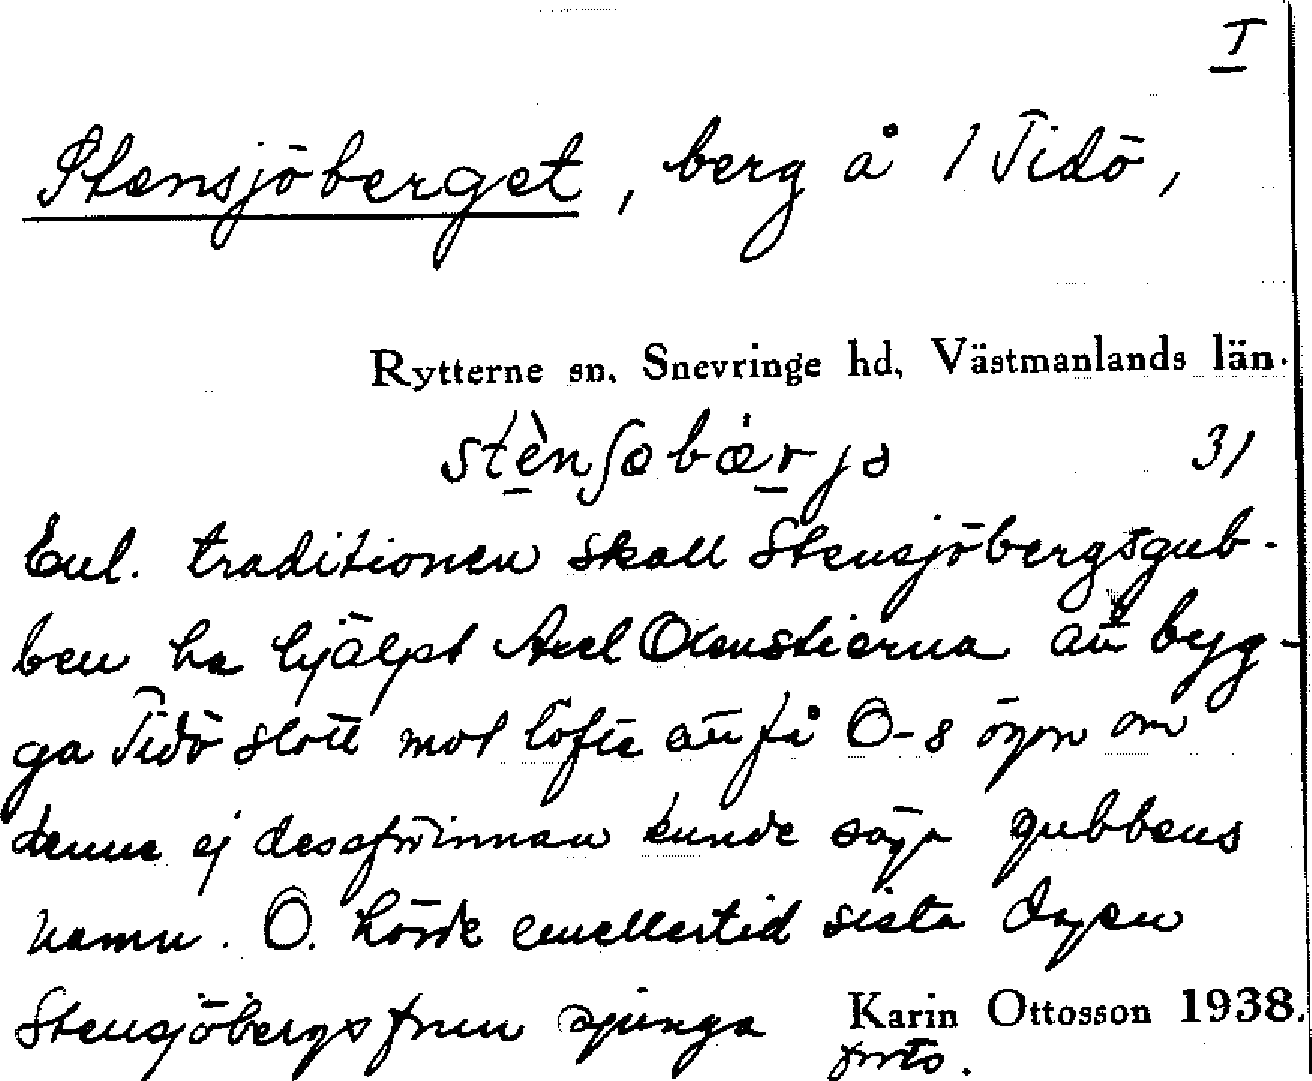 I
Stensjöberget, berg å 1 Tidö,
Rytterne sn, Snevringe hd, Västmanlands län.
stènʃøbærjə 31
Enl. traditionen skall Stensjöbergsgub-
ben ha hjälpt Axel Oxenstierna att byg-
ga Tidö slott mot löfte att få O-s ögon om
denne ej dessförinnan kunde säga gubbens
namn. O. hörde emellertid sista dagen
Stensjöbergsfrun sjunga Karin Ottosson 1938.
forts.